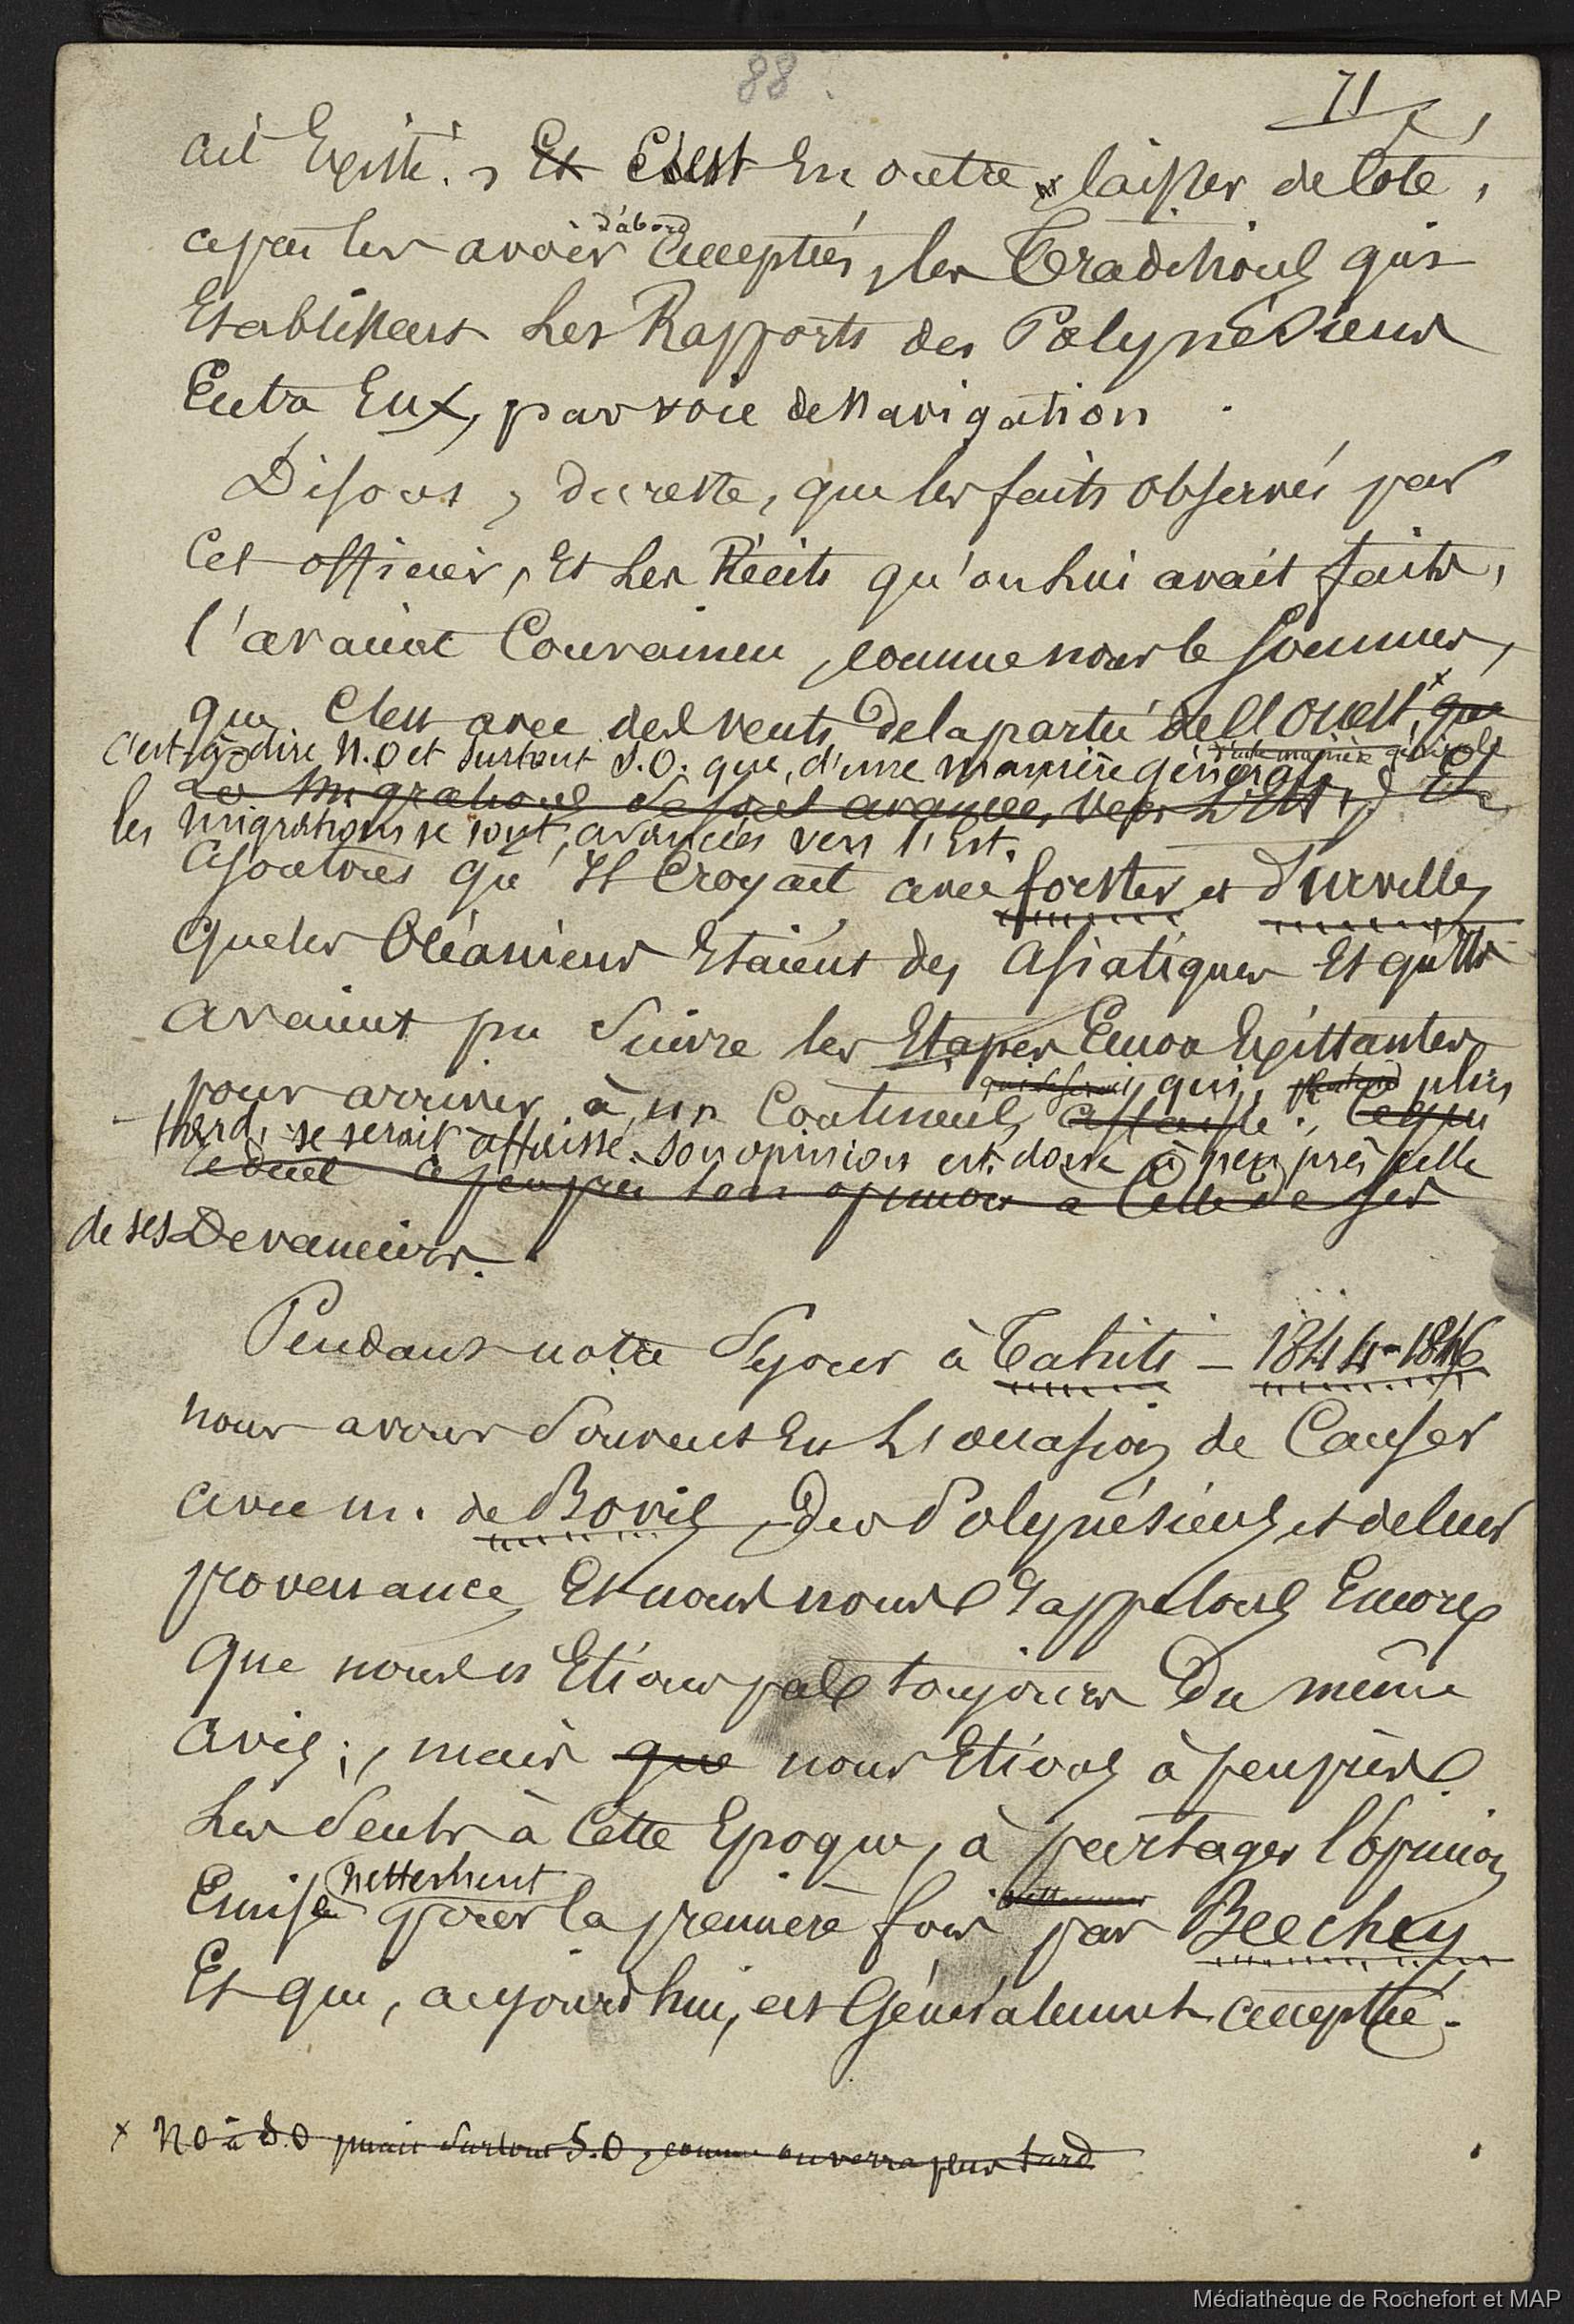 88
71
ait Existé., Et C'est En outre laisser de Coté,
après les avoir d'abord acceptées, les Traditions qui
Etablissent Les Rapports des Polynésiens
Entre Eux, par voie de Navigation.
Disons, du reste, que les faits observés par
Cet officier, Et Les Récits qu'on Lui avait faits,
l'avaient Convaincu, comme nous le sommes,
que C'est avec des vents de la partie de l'Ouest, x que
c'est-à-dire N.O et surtout S.O. que, d'une manière générale d'une manière générale
Les Migrations se sont avancées vers L'Est, Et
les migrations se sont avancées vers l'Est.
ajoutons qu'Il Croyait avec forster et d'urville,
que les Océaniens Etaient des Asiatiques Et qu'Ils
avaient pu Suivre les Etapes Encor Existantes
pour arriver à un Continent qui, plus
tard, se serait affaissé. Son opinion est donc à peu près celle
à peu près son opinion à Celle de ses
de ses Devanciers.
Pendant notre Séjour à Tahiti – 1844-1846
nous avons Souvent Eu L'occasion de Causer
avec m. de Bovis, Des Polynésiens et de leur
provenance, Et nous nous rappelons Encore
Que nous n'Etions pas toujours Du même
avis; mais que nous Etions à peu près
Les Seuls à Cette Epoque, à partager l'Opinion
Emise nettement pour la première fois par Beechey
Et qui, aujourd'hui, est Généralement acceptée.
x NO à S.O mais Surtout S.O, comme on verra plus tard
Médiathèque de Rochefort et MAP